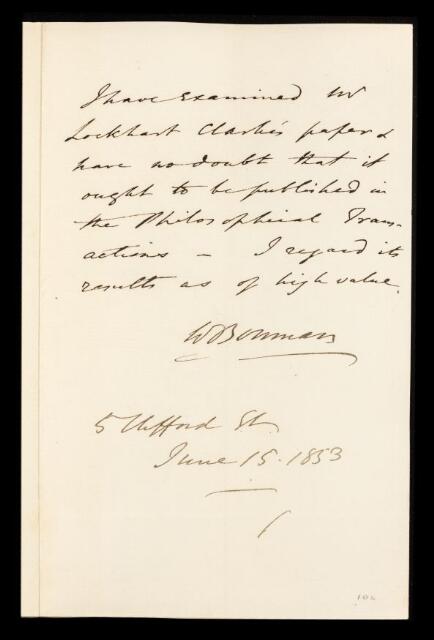 I have examined Mr
Lockhart Clarke's paper &
have no doubt that it
ought to be published in
the Philosophical Trans-
actions - I regard its
results as of high value.
W Bowman
5 Clifford St.
June 15. 1853
102